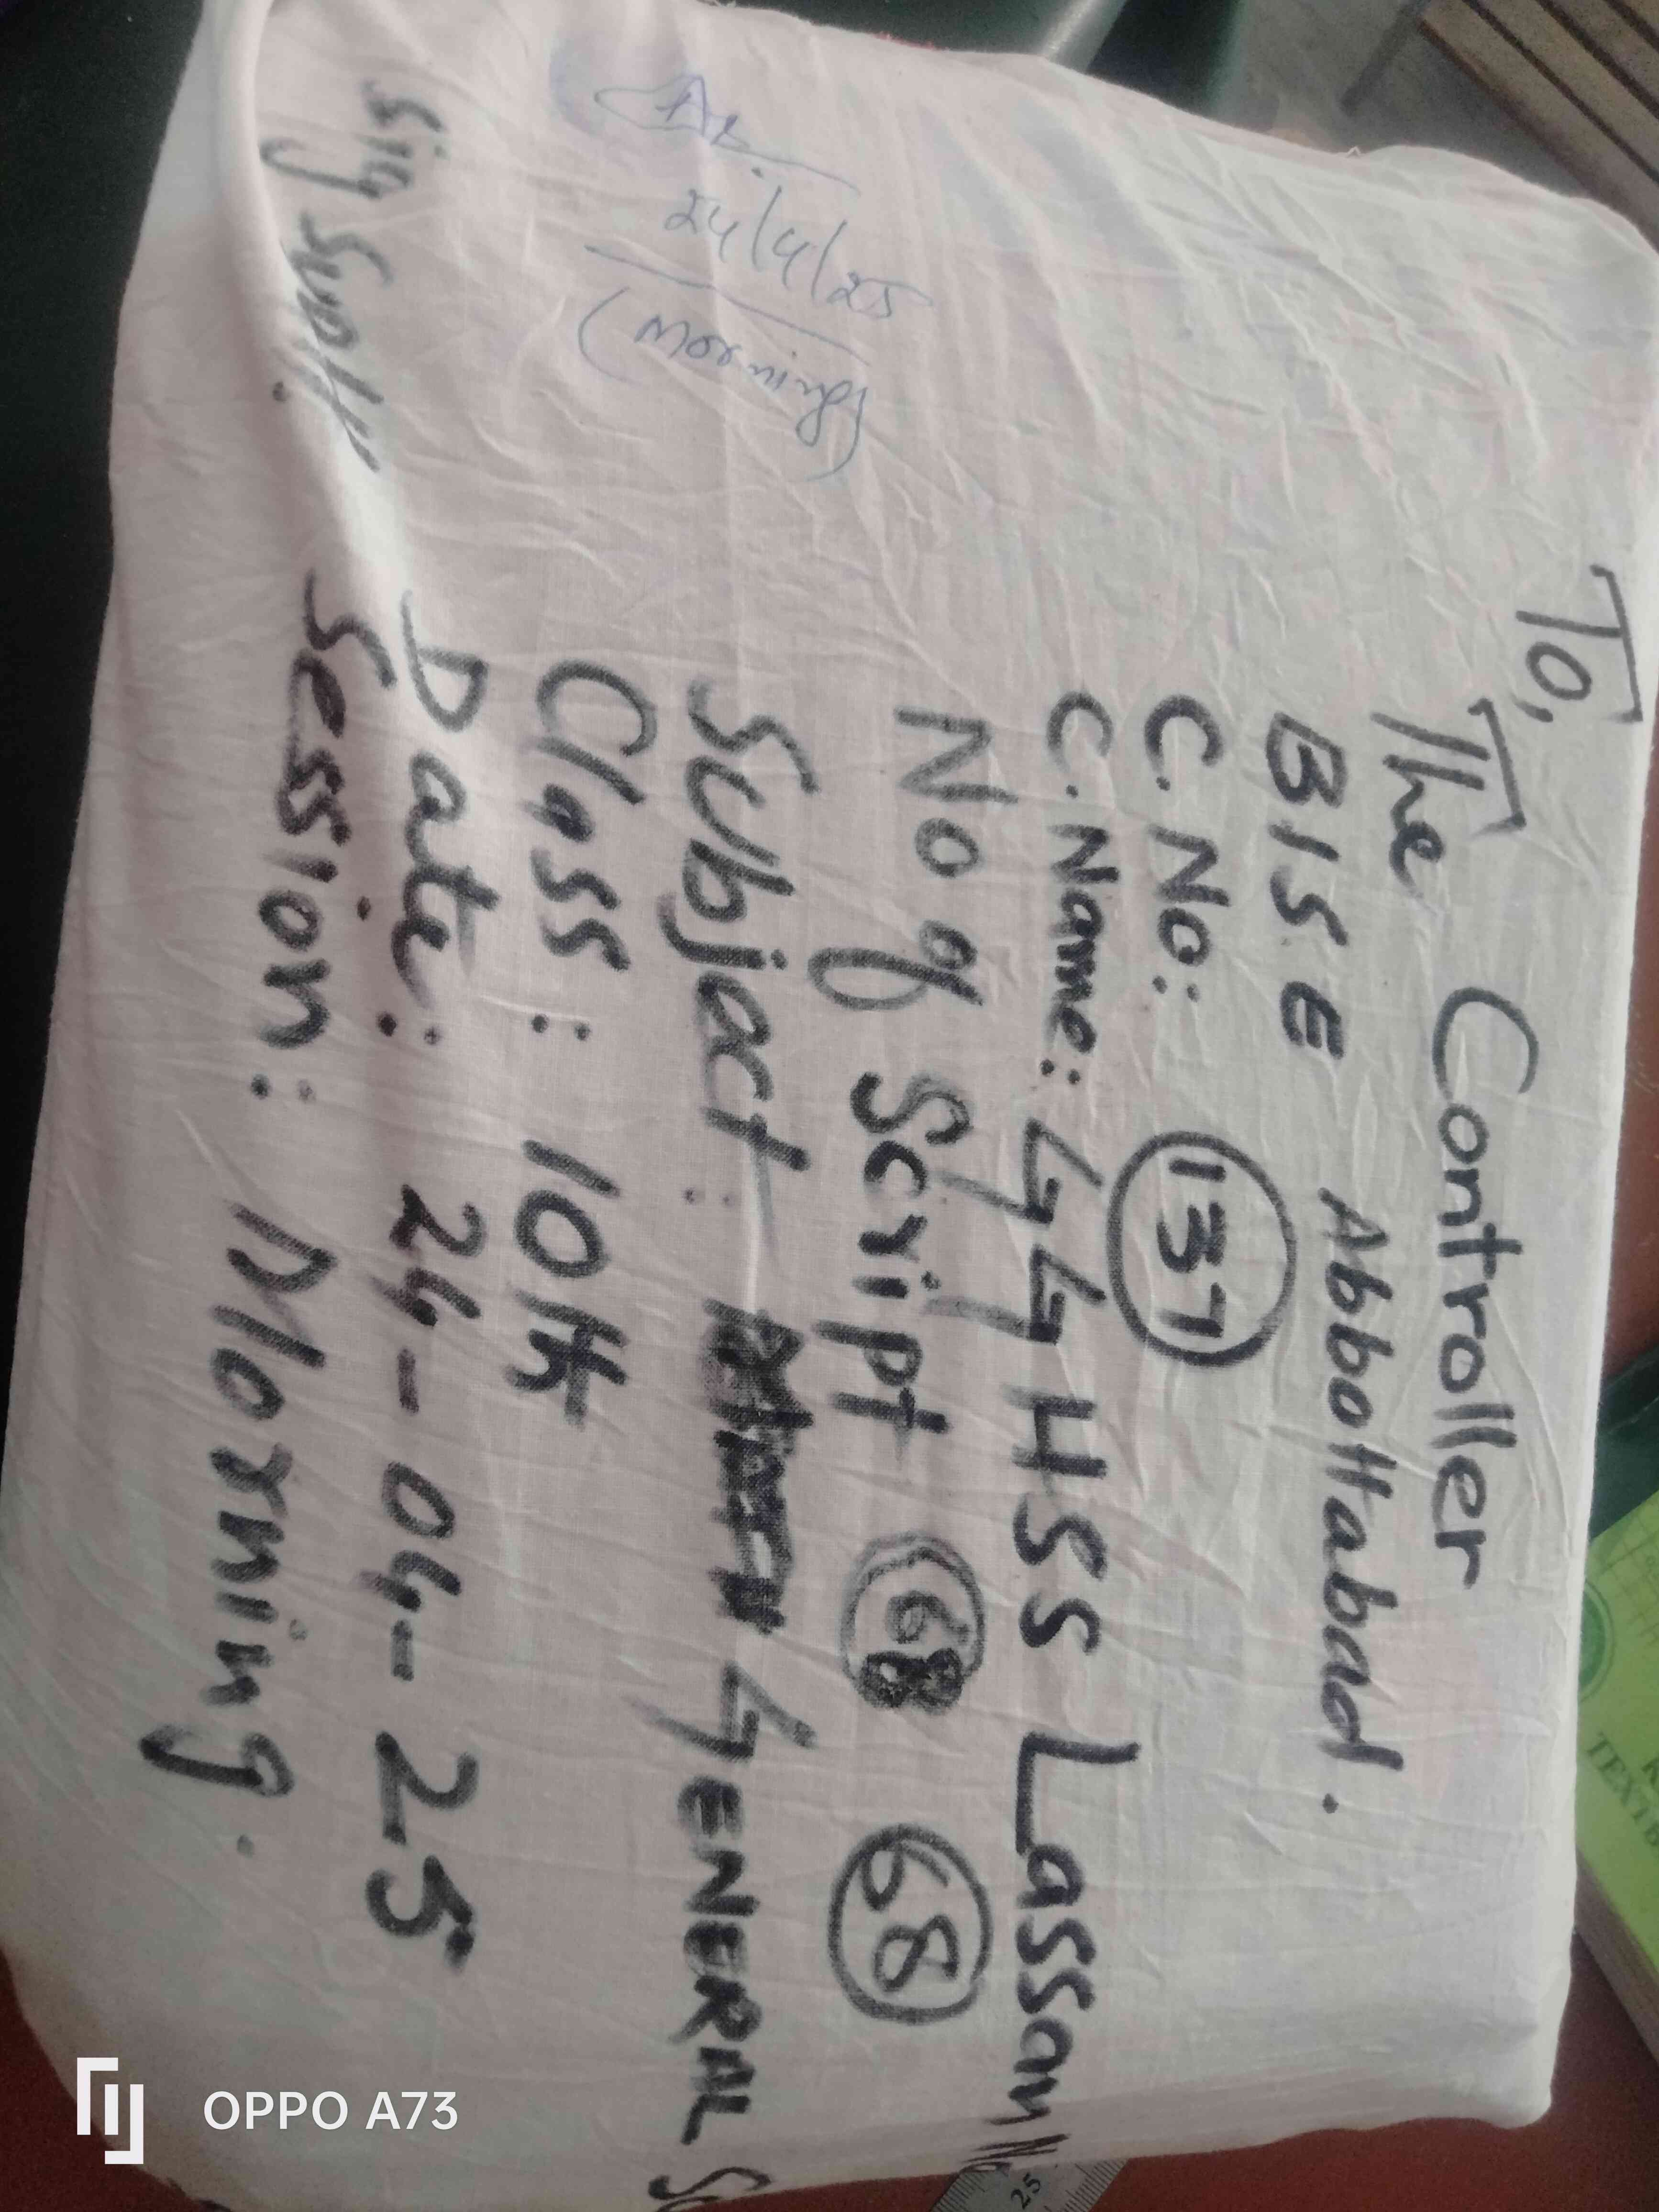 To,
The Controller
BISE Abbottabad.
C.No: 137
C.Name: GGHSS Lassan
No of Script 68 68
Subject: GENERAL
Class: 10th
Date: 24-04-25
Session: Morning.
24/4/25
(Morning)
25
TEXTB
OPPO A73